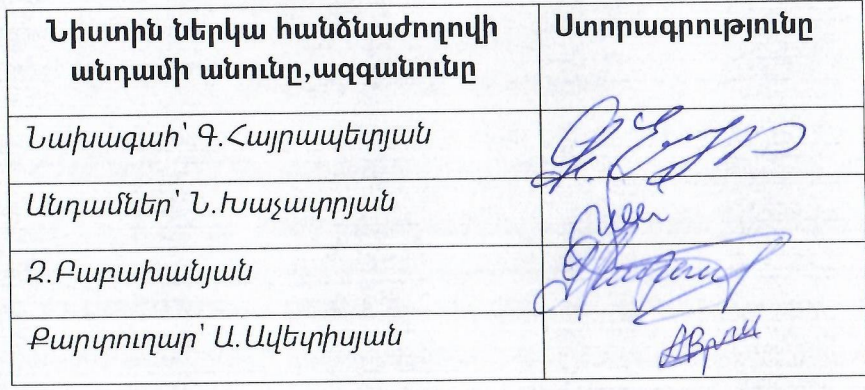 Նիստին ներկա հանձնաժողովի Ստորագրությունը
անդամի անունը,ազգանունը
Նախագահ՝ Գ.Հայրապետյան
Անդամներ՝ Ն.Խաչատրյան
Զ.Բաբախանյան
Քարտուղար՝ Ա.Ավետիսյան